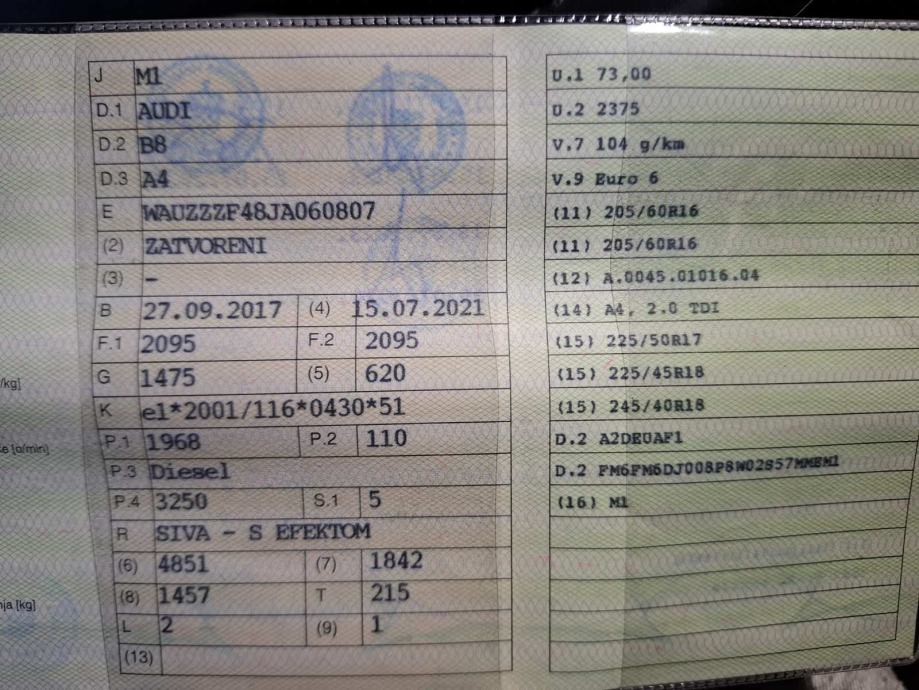 J M1
D.1 AUDI
D.2 B8
D.3 A4
E WAUZZZF48JA060807
(2) ZATVORENI
(3) –
B 27.09.2017 (4) 15.07.2021
F.1 2095 F.2 2095
G 1475 (5) 620
K e1*2001/116*0430*51
P.1 1968 P.2 110
P.3 Diesel
P.4 3250 S.1 5
R SIVA - S EFEKTOM
(6) 4851 (7) 1842
(8) 1457 T 215
L 2 (9) 1
(13)
/kg]
[o/min]
[kg]
U.1 73,00
U.2 2375
V.7 104 g/km
V.9 Euro 6
(11) 205/60R16
(11) 205/60R16
(12) A.0045.01016.04
(14) A4, 2.0 TDI
(15) 225/50R17
(15) 225/45R18
(15) 245/40R18
D.2 A2DEUAF1
D.2
(16) M1